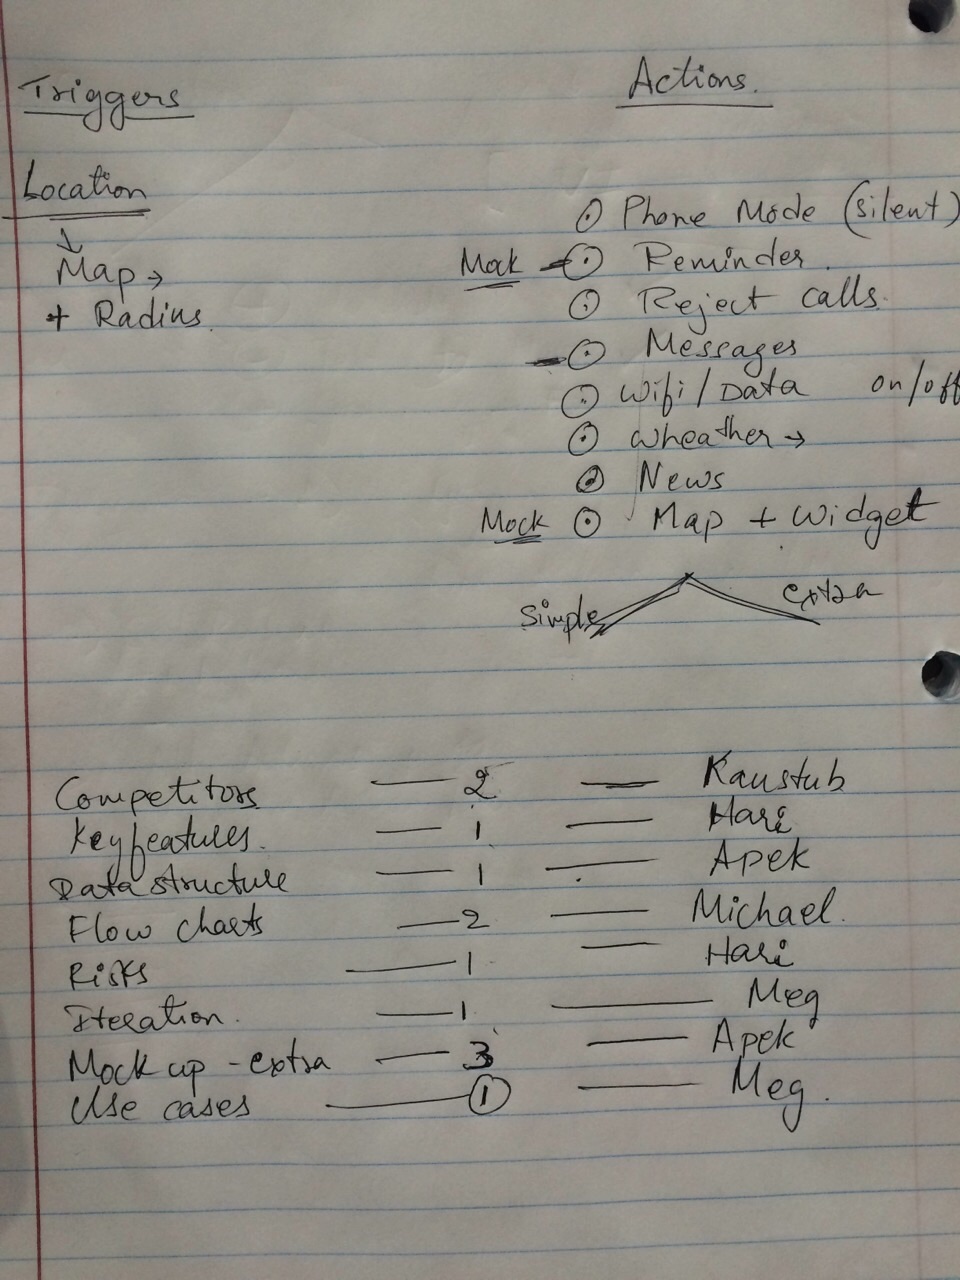 Triggers
Actions.
Location
↓
Map →
+ Radius.
⊙ Phone Mode (silent)
Mock ⊙ Reminder.
⊙ Reject calls.
⊙ Messages
⊙ Wifi/Data on/off
⊙ Wheather →
⊙ News
Mock ⊙ Map + Widget
Simple extra
Competitors — 2 — Kaustub
Key features. — 1 — Hari
Data structure — 1 — Apek
Flow charts — 2 — Michael.
Risks — 1 — Hari
Iteration. — 1 — Meg
Mock up - extra — 3 — Apek
Use cases — ① — Meg.